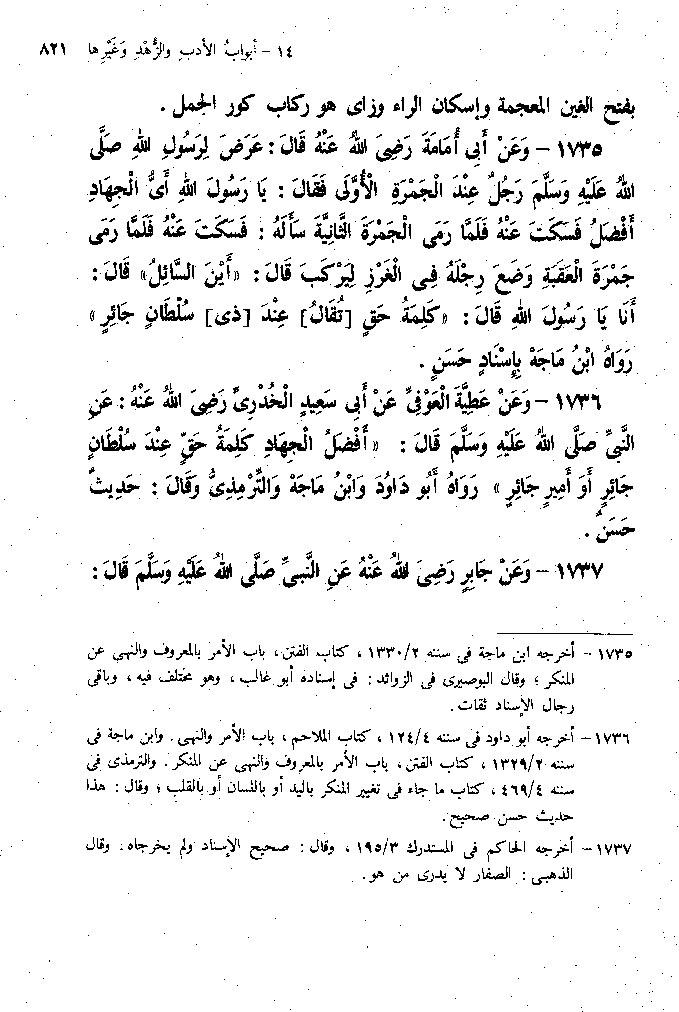 ١٤ – أبوابُ الأدبِ والزُّهْدِ وَغَيْرِها ٨٢١
بفتح الغين المعجمة وإسكان الراء وزاى هو ركاب كور الجمل .
١٧٣٥ – وَعَنْ أَبِى أُمَامَةَ رَضِىَ اللهُ عَنْهُ قَالَ : عَرَضَ لِرَسُولِ اللهِ صَلَّى
اللهُ عَلَيْهِ وَسَلَّمَ رَجُلٌ عِنْدَ الْجَمْرَةِ الْأُوْلَى فَقَالَ : يَا رَسُولَ اللهِ أَىُّ الْجِهَادِ
أَفْضَلُ فَسَكَتَ عَنْهُ فَلَمَّا رَمَى الْجَمْرَةَ الثَّانِيَّةَ سَأَلَهُ : فَسَكَتَ عَنْهُ فَلَمَّا رَمَى
جَمْرَةَ الْعَقَبَةِ وَضَعَ رِجْلَهُ فِى الْغَرْزِ لِيَرْكَبَ قَالَ : «أَيْنَ السَّائِلُ» قَالَ :
أَنَا يَا رَسُولَ اللهِ قَالَ : «كَلِمَةُ حَقٍّ [تُقَالُ] عِنْدَ [ذِى] سُلْطَانٍ جَائِرٍ»
رَوَاهُ ابْنُ مَاجَهْ بِإِسْنَادٍ حَسَنٍ .
١٧٣٦ – وَعَنْ عَطِيَّةَ الْعَوْفِىِّ عَنْ أَبِى سَعِيدٍ الْخُدْرِىِّ رَضِىَ اللهُ عَنْهُ : عَنِ
النَّبِىِّ صَلَّى اللهُ عَلَيْهِ وَسَلَّمَ قَالَ : « أَفْضَلُ الْجِهَادِ كَلِمَةُ حَقٍّ عِنْدَ سُلْطَانٍ
جَائِرٍ أَو أَمِيرٍ جَائِرٍ » رَوَاهُ أَبُو دَاوُدَ وَابْنُ مَاجَهْ وَالتِّرْمِذِىُّ وَقَالَ : حَدِيثٌ
حَسَنٌ .
١٧٣٧ – وَعَنْ جَابِرٍ رَضِىَ اللهُ عَنْهُ عَنِ النَّبِىِّ صَلَّى اللهُ عَلَيْهِ وَسَلَّمَ قَالَ :
١٧٣٥ – أخرجه ابن ماجة فى سننه ١٣٣٠/٢ ، كتاب الفتن ، باب الأمر بالمعروف والنهى عن
المنكر ؛ وقال البوصيرى فى الزوائد : فى إسناده أبو غالب ، وهو مختلف فيه ، وباقى
رجال الإسناد ثقات .
١٧٣٦ – أخرجه أبو داود فى سننه ١٢٤/٤ ، كتاب الملاحم ، باب الأمر والنهى . وابن ماجة فى
سننه ١٣٢٩/٢ ، كتاب الفتن ، باب الأمر بالمعروف والنهى عن المنكر . والترمذى فى
سننه ٤٦٩/٤ ، كتاب ما جاء فى تغيير المنكر باليد أو باللسان أو بالقلب ؛ وقال : هذا
حديث حسن صحيح .
١٧٣٧ – أخرجه الحاكم فى المستدرك ١٩٥/٣ ، وقال : صحيح الإسناد ولم يخرجاه . وقال
الذهبى : الصفار لا يدرى من هو .